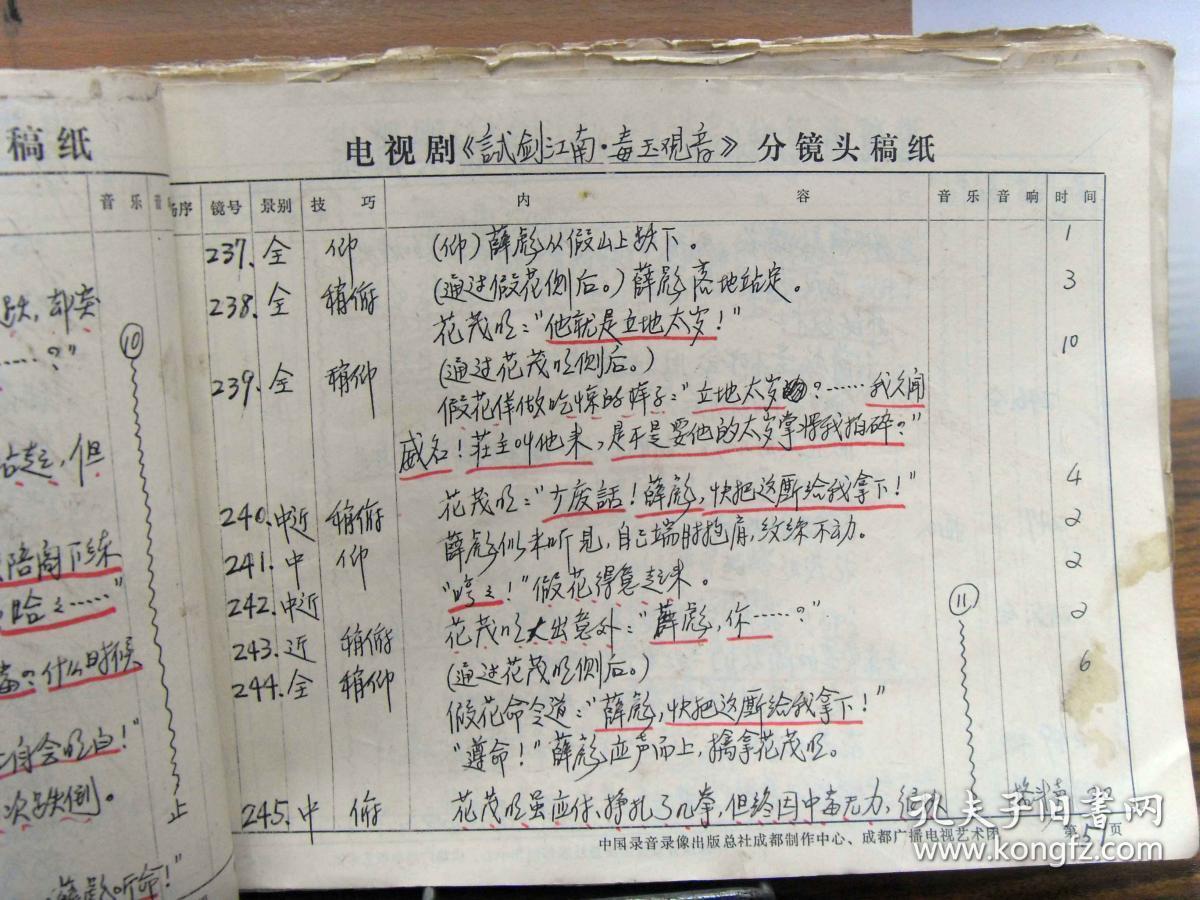 稿纸
音乐
跌,却突
……?"
站起来,但
陪阁下练
哈之……"
毒?什么时候
自会明白!"
次跌倒。
薛彪听命!"
⑩
止
电视剧《試剑江南·毒玉观音》分镜头稿纸
场序 镜号 景别 技巧 内容 音乐 音响 时间
237. 全 仰 (仰)薛彪从假山上跃下。 1
238. 全 稍俯 (通过假花侧后。)薛彪落地站定。 3
花茂明:"他就是立地太岁!"
239. 全 稍仰 (通过花茂明侧后。) 10
假花佯做吃惊的样子:"立地太岁?……我久闻
威名!荘主叫他来,是不是要他的太岁掌将我拍碎?"
240. 中近 稍俯 花茂明:"少废話!薛彪,快把这厮给我拿下!" 4
241. 中 仰 薛彪似未听见,自己端肘抱肩,纹絲不动。 2
242. 中近 "哼之!"假花得意起来。 2
243. 近 稍俯 花茂明大出意外:"薛彪,你……?" 2
244. 全 稍仰 (通过花茂明侧后。) 6
假花命令道:"薛彪,快把这厮给我拿下!"
"遵命!"薛彪应声而上,擒拿花茂明。
245. 中 俯 花茂明虽应付、挣扎了几拳,但终因中毒无力,很
⑪
中国录音录像出版总社成都制作中心、成都广播电视艺术团
第51页
孔夫子旧书网
www.kongfz.com